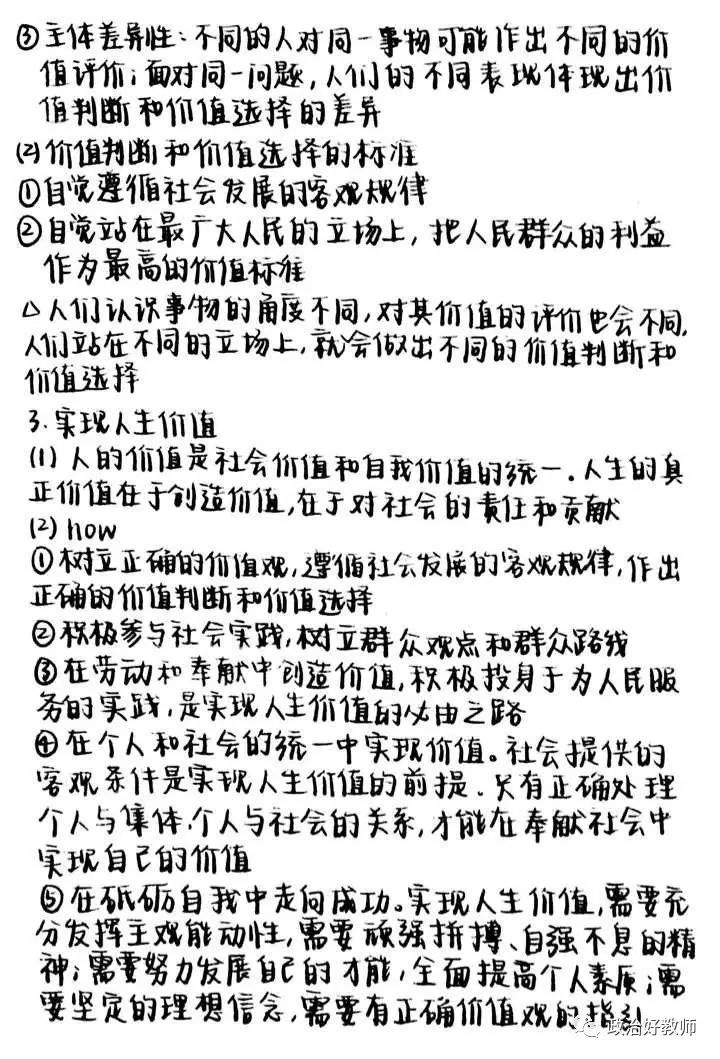 ③主体差异性：不同的人对同一事物可能作出不同的价
值评价；面对同一问题，人们的不同表现体现出价
值判断和价值选择的差异
(2)价值判断和价值选择的标准
①自觉遵循社会发展的客观规律
②自觉站在最广大人民的立场上，把人民群众的利益
作为最高的价值标准
△人们认识事物的角度不同，对其价值的评价也会不同，
人们站在不同的立场上，就会做出不同的价值判断和
价值选择
3.实现人生价值
(1)人的价值是社会价值和自我价值的统一。人生的真
正价值在于创造价值，在于对社会的责任和贡献
(2)how
①树立正确的价值观，遵循社会发展的客观规律，作出
正确的价值判断和价值选择
②积极参与社会实践，树立群众观点和群众路线
③在劳动和奉献中创造价值，积极投身于为人民服
务的实践，是实现人生价值的必由之路
④在个人和社会的统一中实现价值。社会提供的
客观条件是实现人生价值的前提。只有正确处理
个人与集体，个人与社会的关系，才能在奉献社会中
实现自己的价值
⑤在砥砺自我中走向成功。实现人生价值，需要充
分发挥主观能动性，需要顽强拼搏、自强不息的精
神；需要努力发展自己的才能，全面提高个人素质；需
要坚定的理想信念，需要有正确价值观的指引
政治好教师